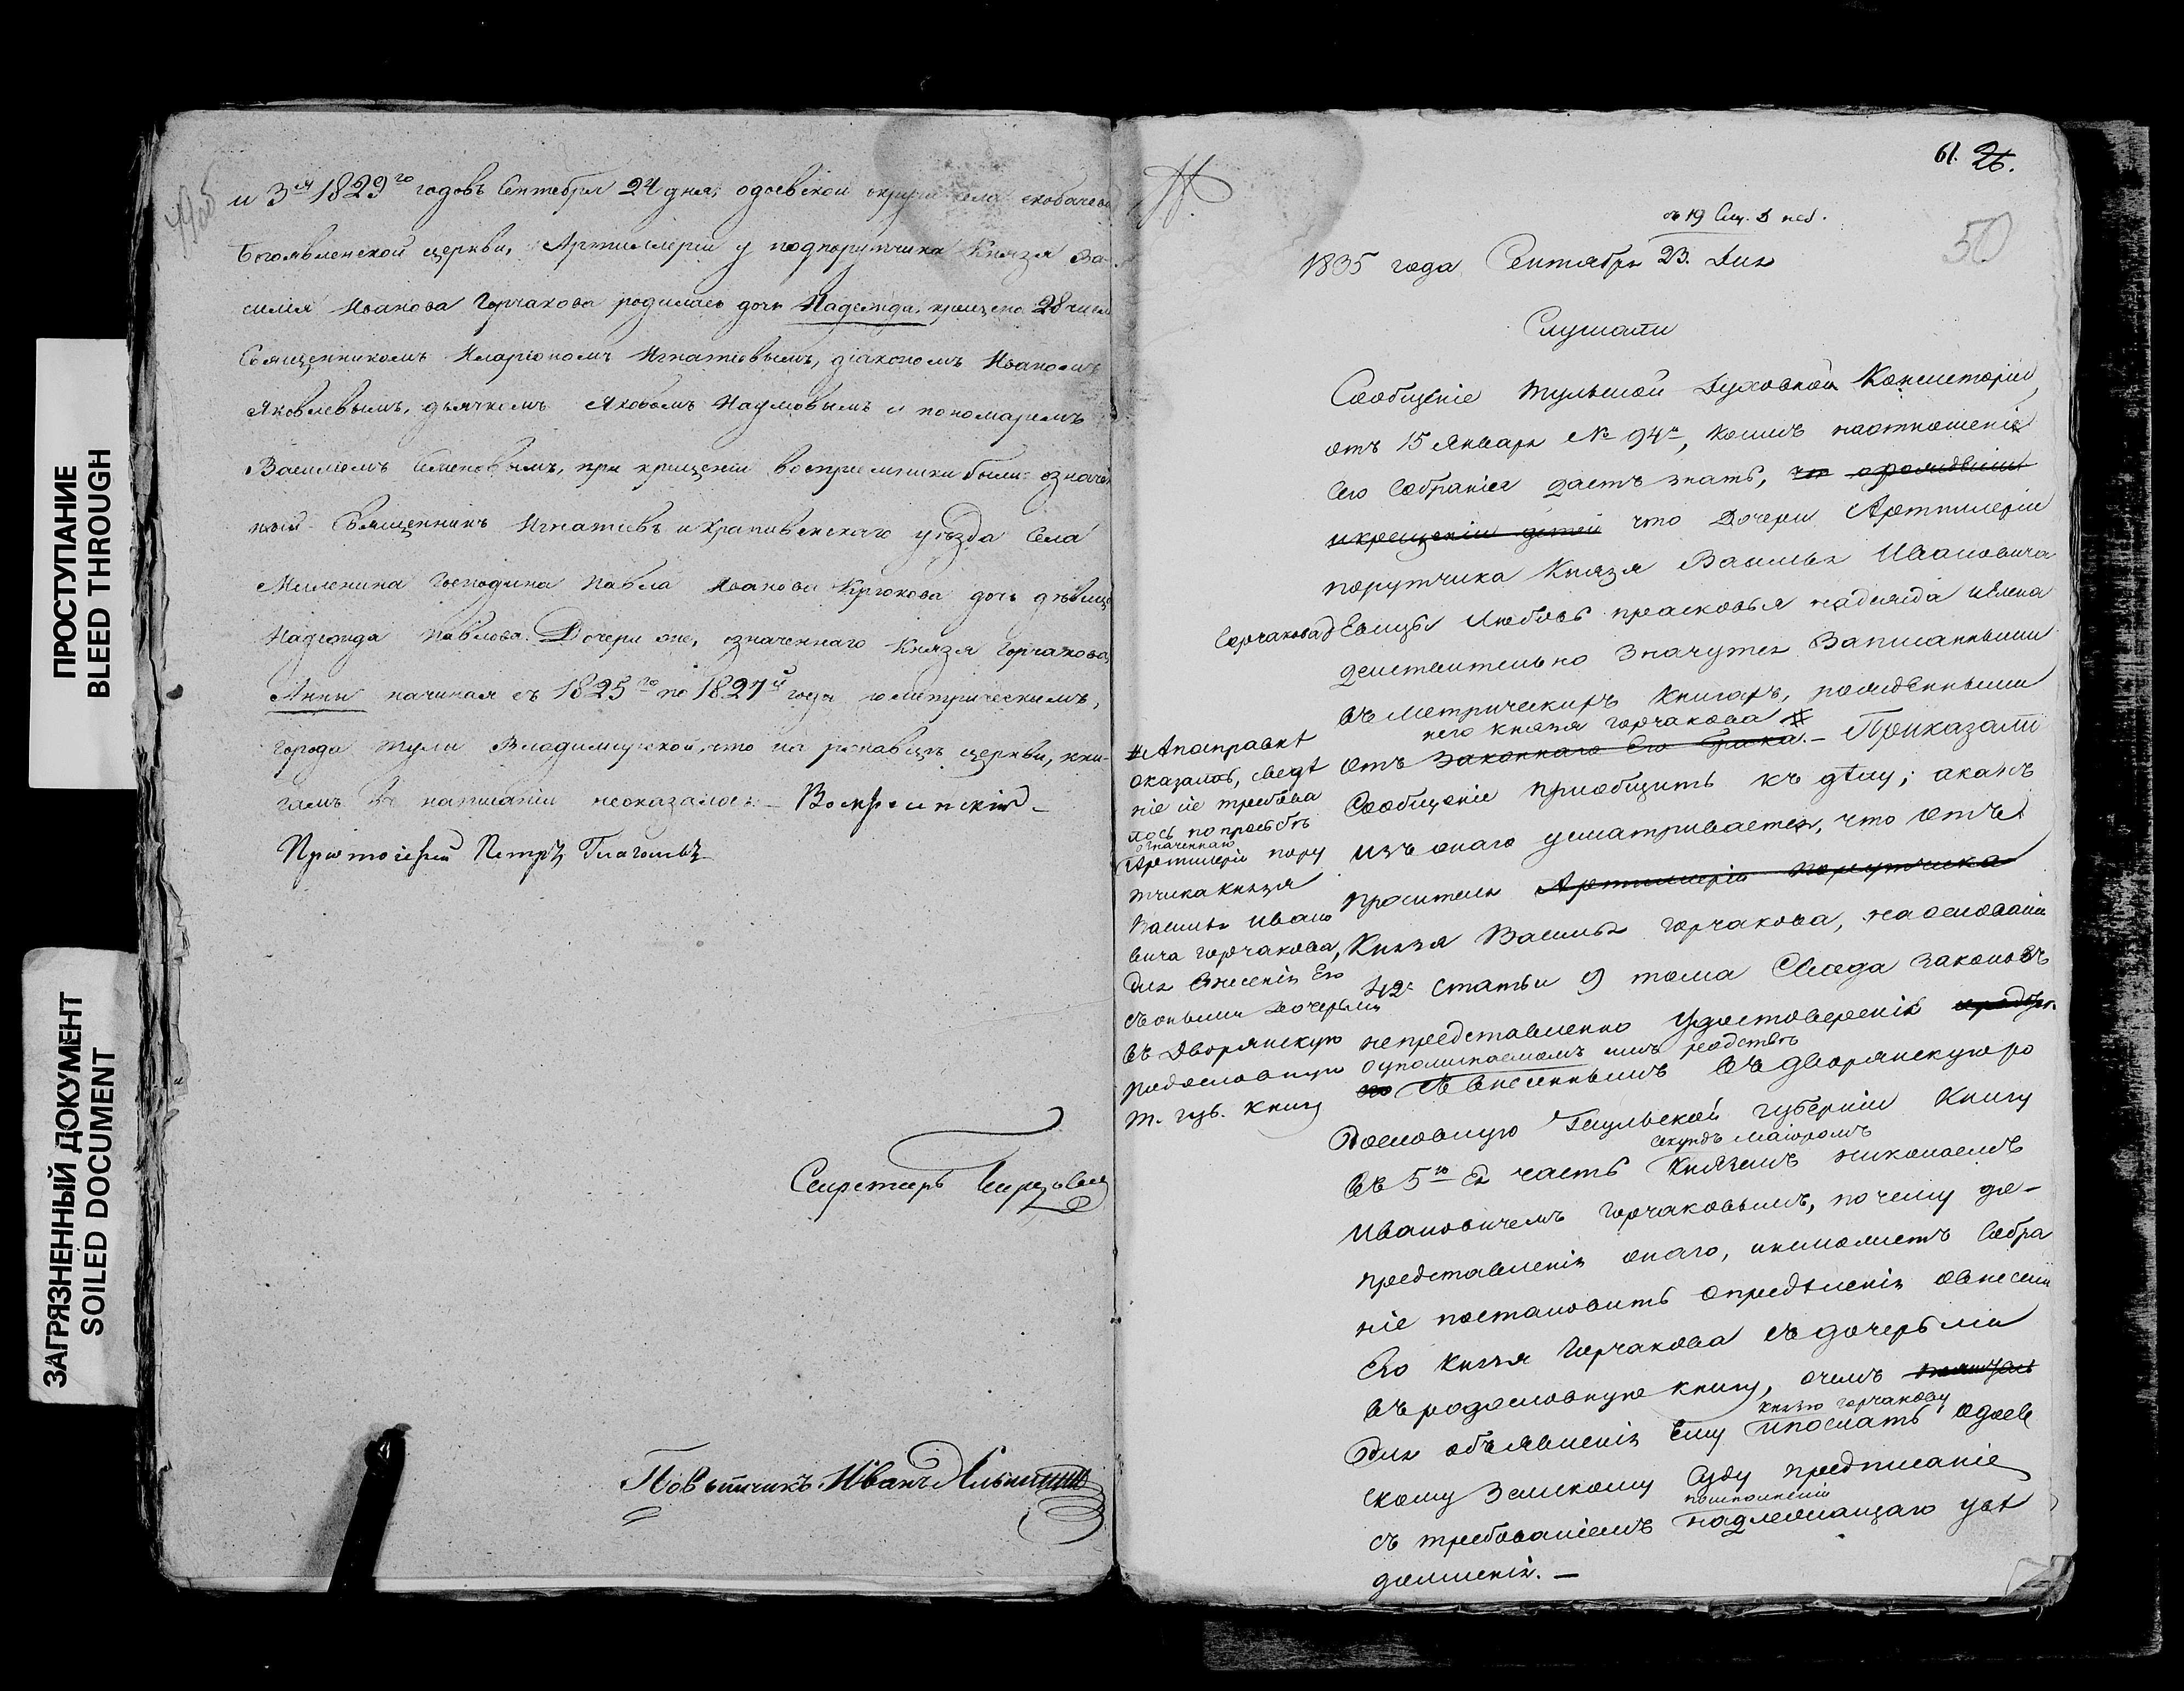 ПРОСТУПАНИЕ
BLEED THROUGH
ЗАГРЯЗНЕННЫЙ ДОКУМЕНТ
SOILED DOCUMENT
и 3я 1829го годовъ Сентебря 24 дня, одоевской округи села скобачева
Богоявленской церкви, Артиллеріи у подпорутчика Князя Ва-
силія Иванова Горчакова родилась дочь Надежда, крещена 28 числ
Священникомъ Иларіономъ Игнатіевымъ, діакономъ Иваномъ
Яковлевымъ, дьячкомъ Яковомъ Наумовымъ и пономаремъ
Василіемъ Семеновымъ, при крещеніи воспріемники были: означен
ный Священникъ Игнатіевъ и Крапивенскаго уѣзда Села
Миленина Господина Павла Иванова Крюкова дочь дѣвица
Надежда Павлова. Дочери же, означеннаго Князя Горчакова,
Анны начиная съ 1825го по 1827й года по метрическимъ,
города Тулы Владимирской, что на ржавцѣ церкви, кни-
гамъ въ написаніи неоказалось.
Протоіерей Петръ Глаголевъ
Секретарь
Повытчикъ Иванъ
61. 26.
50
1835 года Сентября 23. Дня
Слушали
Сообщеніе Тульской Духовной Консисторіи,
отъ 15 Января № 94м, коимъ наотношеніе
сего Собранія даетъ знать, что орожденіи
икрещеніи детей что Дочери Артиллеріи
порутчика Князя Василья Ивановича
Горчакова дѣвицы Любовь прасковья надежда иелена
действительно значутся Записанными
въ метрическихъ книгахъ, рожденными
него князя горчакова #
отъ Законнаго Его брака. – Приказали
Сообщеніе приобщить къ дѣлу; акакъ
изъ онаго усматривается, что отъ
просителя Артиллеріи порутчика
Князя Василья горчакова, наосновании
42й статьи 9 тома Свода законовъ
непредставленно удостоверенія
оупоминаемомъ имъ родствѣ
съ внесеннымъ въ дворянскуюро
дословную Тульской губерніи Книгу
секундъ маіоромъ
въ 5ю Ея часть Княземъ николаемъ
Ивановичемъ горчаковымъ, почему до-
представленія онаго, неможетъ Собра
ніе постановить определенія овнесеніи
Его князя Горчакова съ дочерьми
въ родословную книгу, очемъ
князю горчакову
для объявленія Ему ипослать одоев
скому Земскому Суду предписаніе
поисполненіи
съ требованіемъ надлежащаго уве
домленія. –
# Апоправкѣ
оказалось, сведѣ
ніе сіе требова
лось по просьбѣ
означеннаго
Артилеріи пору
тчика князя
Василья Ивано
вича горчакова,
для внесенія Его
съоными дочерьми
въ Дворянскую
родословную
Т. губ. книгу